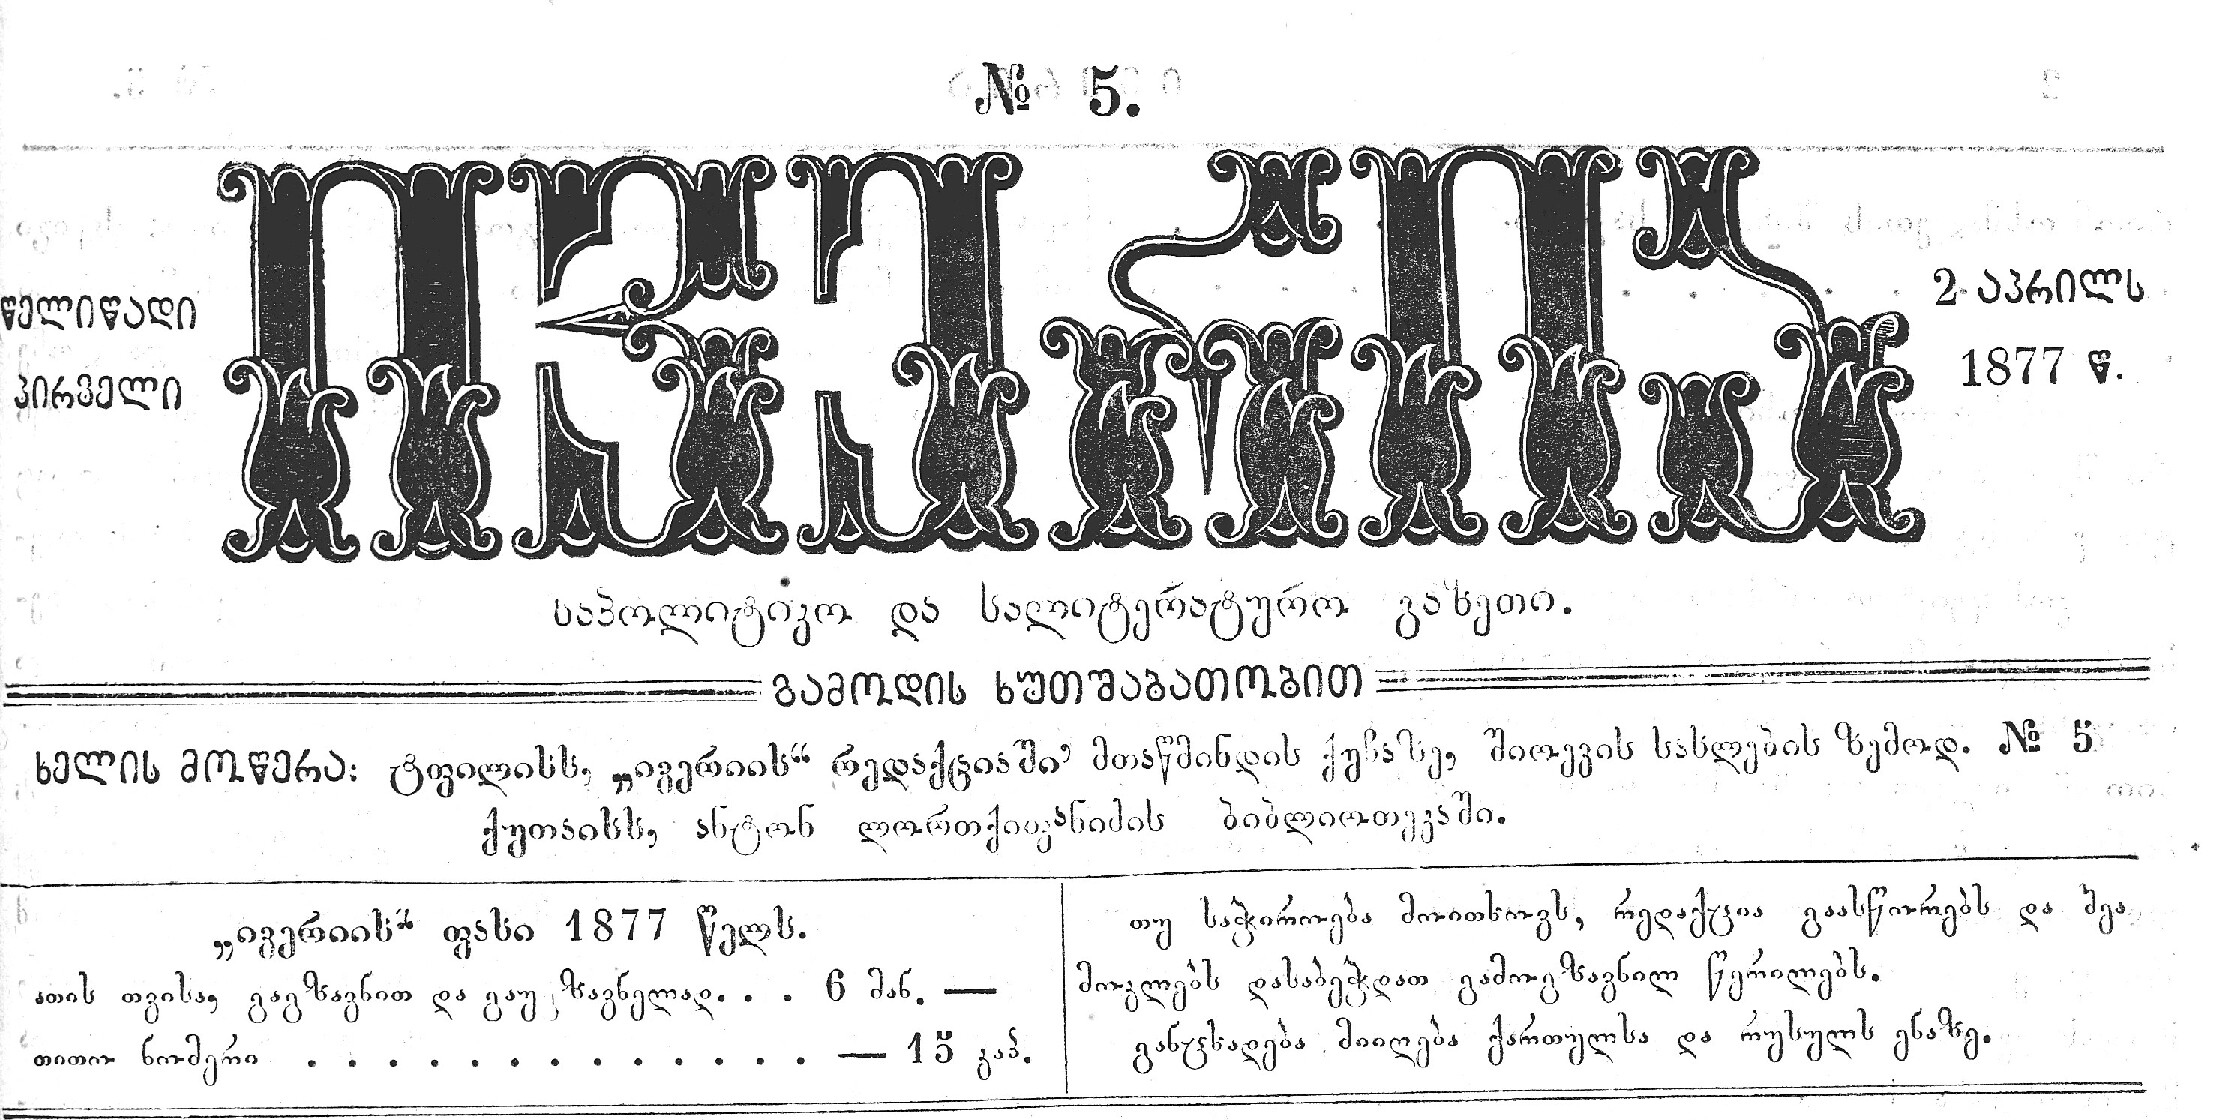 № 5.
ივერია
წელიწადი
პირველი
2 აპრილს
1877 წ.
საპოლიტიკო და სალიტერატურო გაზეთი.
გამოდის ხუთშაბათობით
ხელის მოწერა: ტფილისს, „ივერიის“ რედაქციაში, მთაწმინდის ქუჩაზე, შიოევის სახლების ზემოდ. № 5
ქუთაისს, ანტონ ლორთქიფანიძის ბიბლიოთეკაში.
„ივერიის“ ფასი 1877 წელს.
ათის თვისა, გაგზავნით და გაუგზავნელად. . . 6 მან. —
თითო ნომერი . . . . . . . . . . . . . — 15 კაპ.
თუ საჭიროება მოითხოვს, რედაქცია გაასწორებს და შეა
მოკლებს დასაბეჭდათ გამოგზავნილ წერილებს.
განცხადება მიიღება ქართულსა და რუსულს ენაზე.